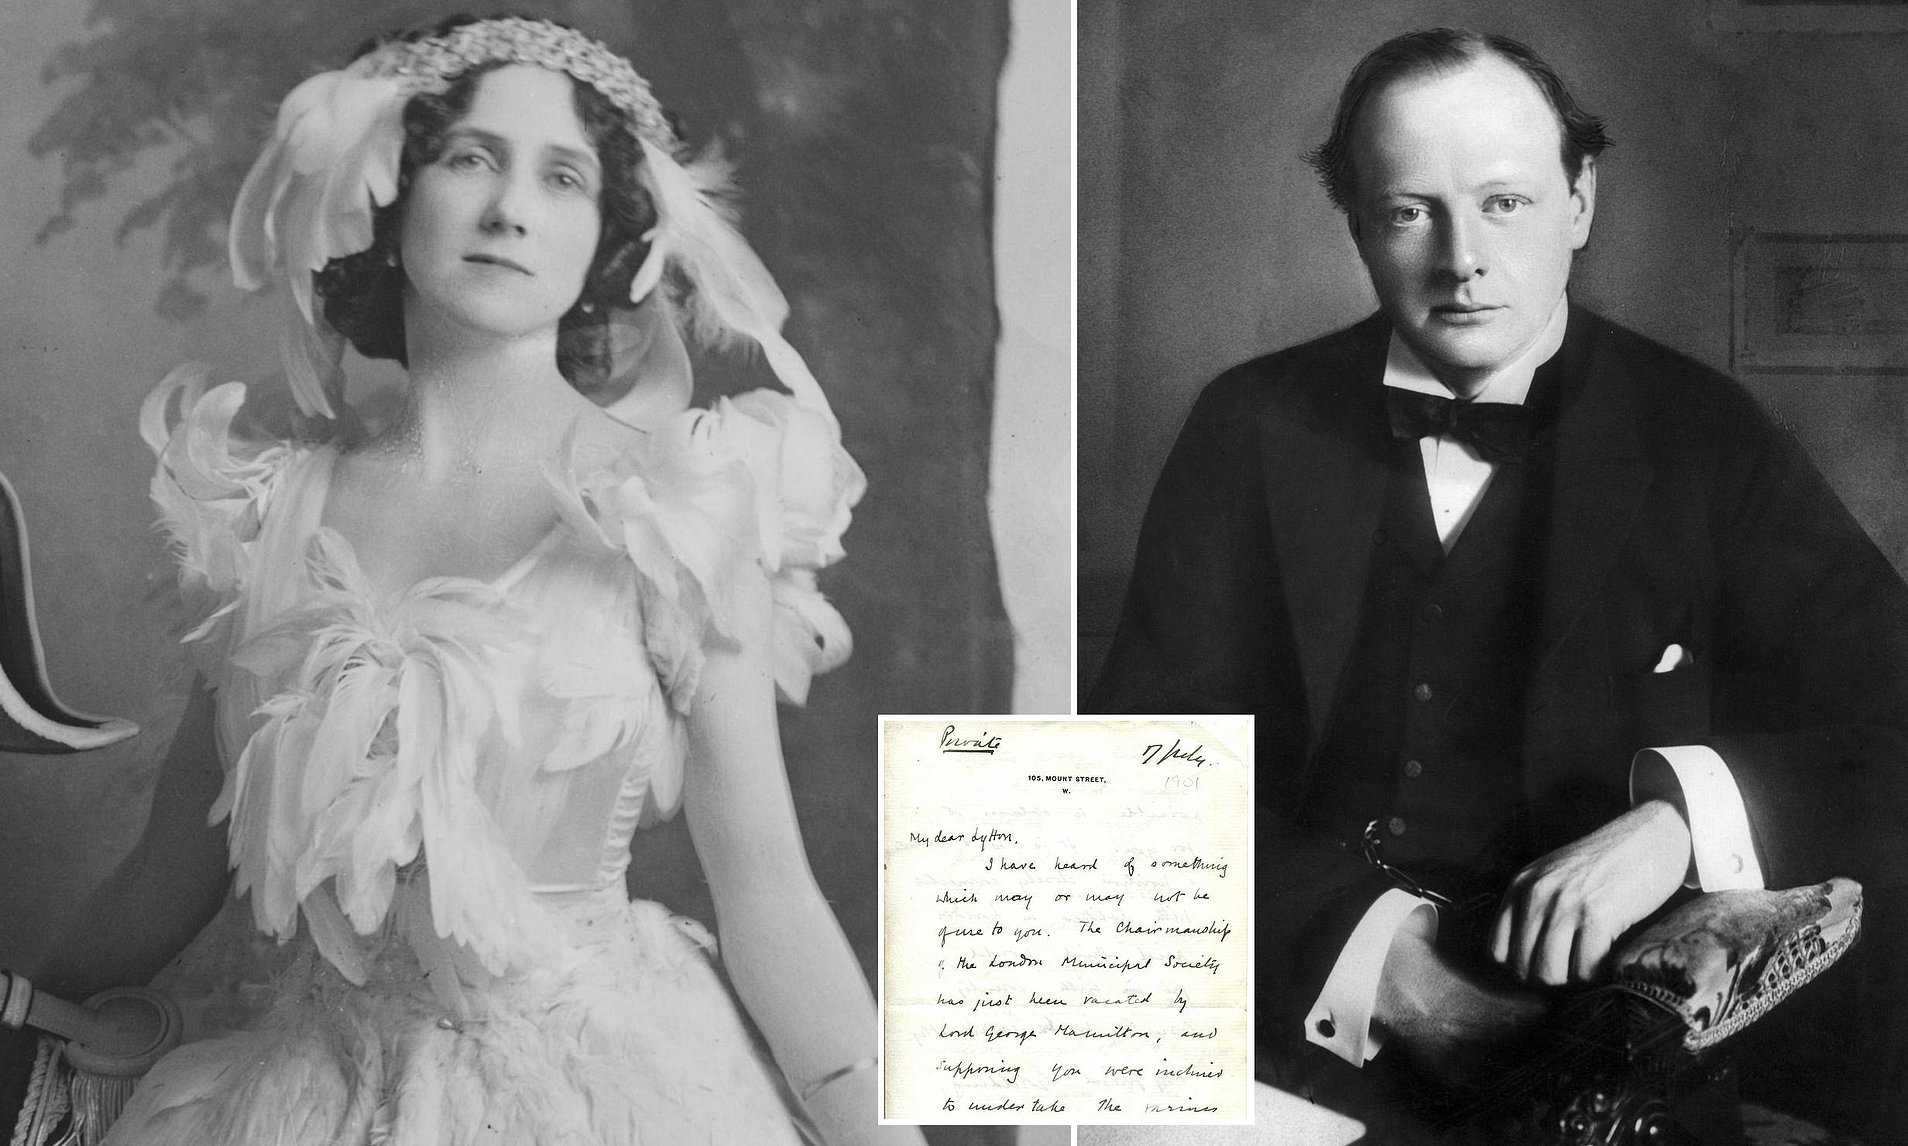 Private
7 July.
105, MOUNT STREET,
W.
1901
My dear Lytton,
I have heard of something
which may or may not be
of use to you. The Chairmanship
of the London Municipal Society
has just been vacated by
Lord George Hamilton, and
supposing you were inclined
to undertake the various